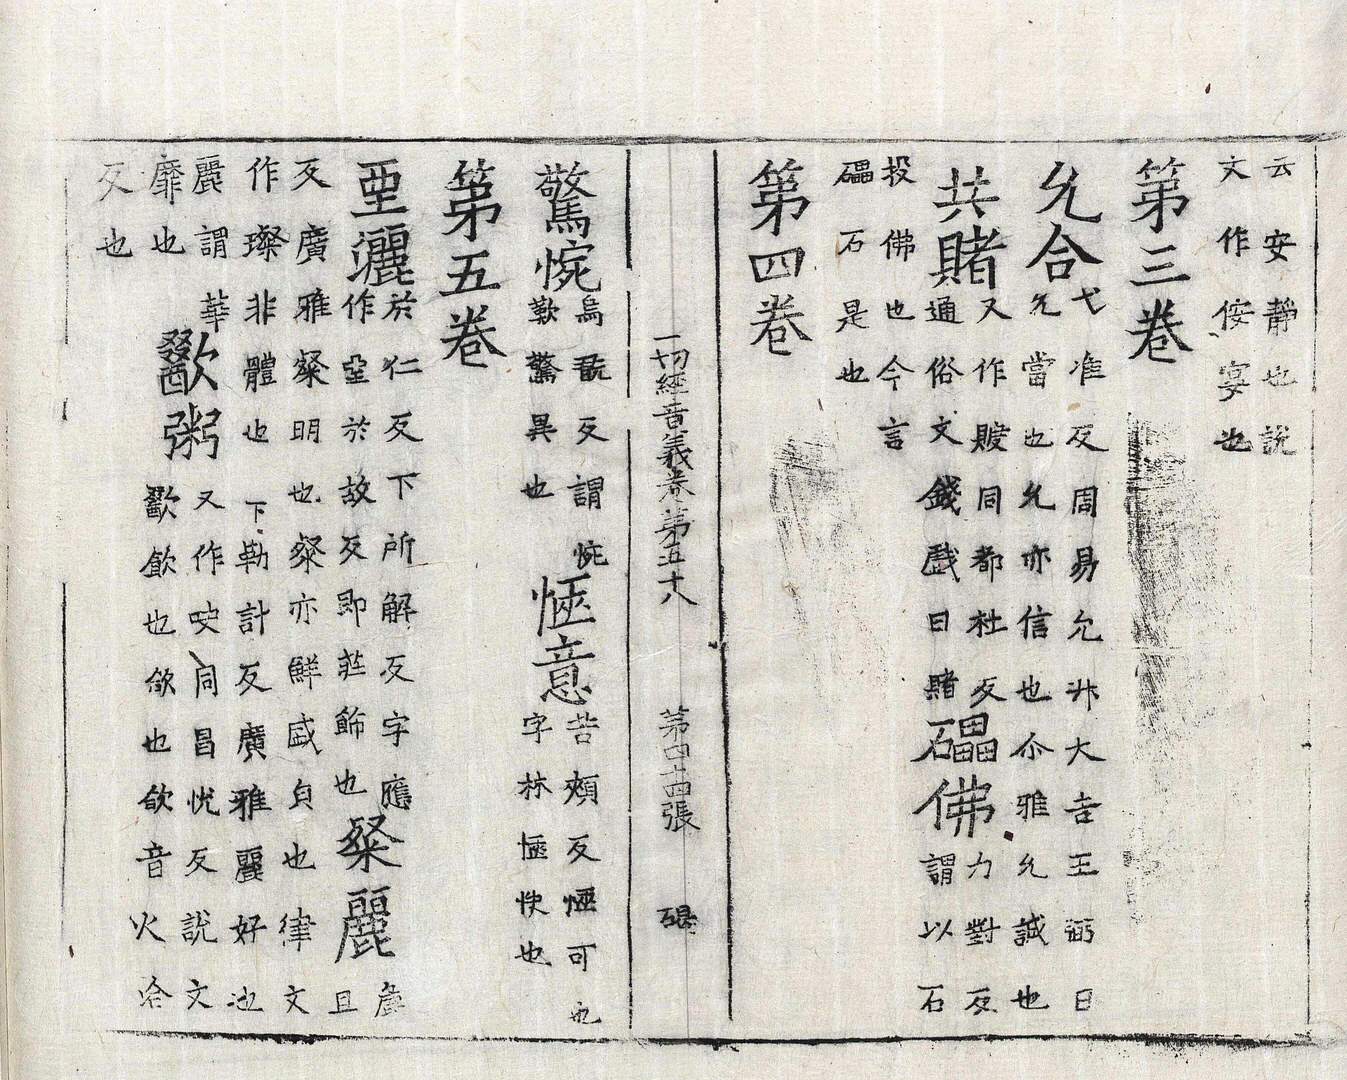 云安静也說
文作侒宴也
第三卷
允合弋准反周易允升大吉王弼曰
允當也允亦信也尒雅允誠也
共賭又作賭同都杜反
通俗文錢戲曰賭礧佛力對反
謂以石
投佛也今言
礧石是也
第四卷
一切經音義卷第五十八 第四十四張 碣
驚惋烏翫反謂惋
歎驚異也愜意苦頰反愜可也
字林愜快也
第五卷
垔灑於仁反下所解反字應
作垔於故反即莊飾也粲麗麁
且
反廣雅粲明也粲亦鮮盛皃也律文
作璨非體也下勒計反廣雅麗好也
麗謂華
靡也歠粥又作㕞同昌悅反說文
歠飲也欱也欱音火合
反也